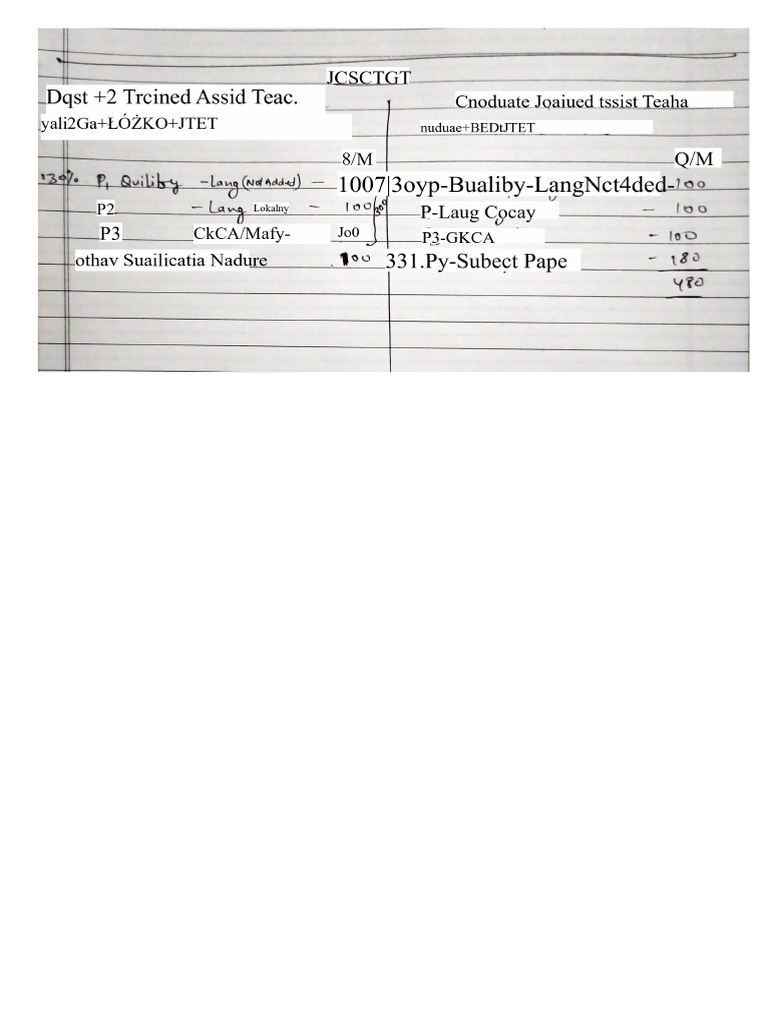 JCSCTGT
Dqst +2 Trcined Assid Teac.
Cnoduate Joaiued tssist Teaha
yali2Ga+ŁÓŻKO+JTET
nuduae+BEDtJTET
8/M Q/M
30% P1 Quiliby - Lang (Not Added) - 1007|3oyp-Bualiby-LangNct4ded- 100
P2 - Lang Lokalny - 100 300 P-Laug Cocay - 100
P3 CkCA/Mafy- Jo0 P3-GKCA - 100
othav Suailicatia Nadure 100 331.Py-Subect Pape - 180
480